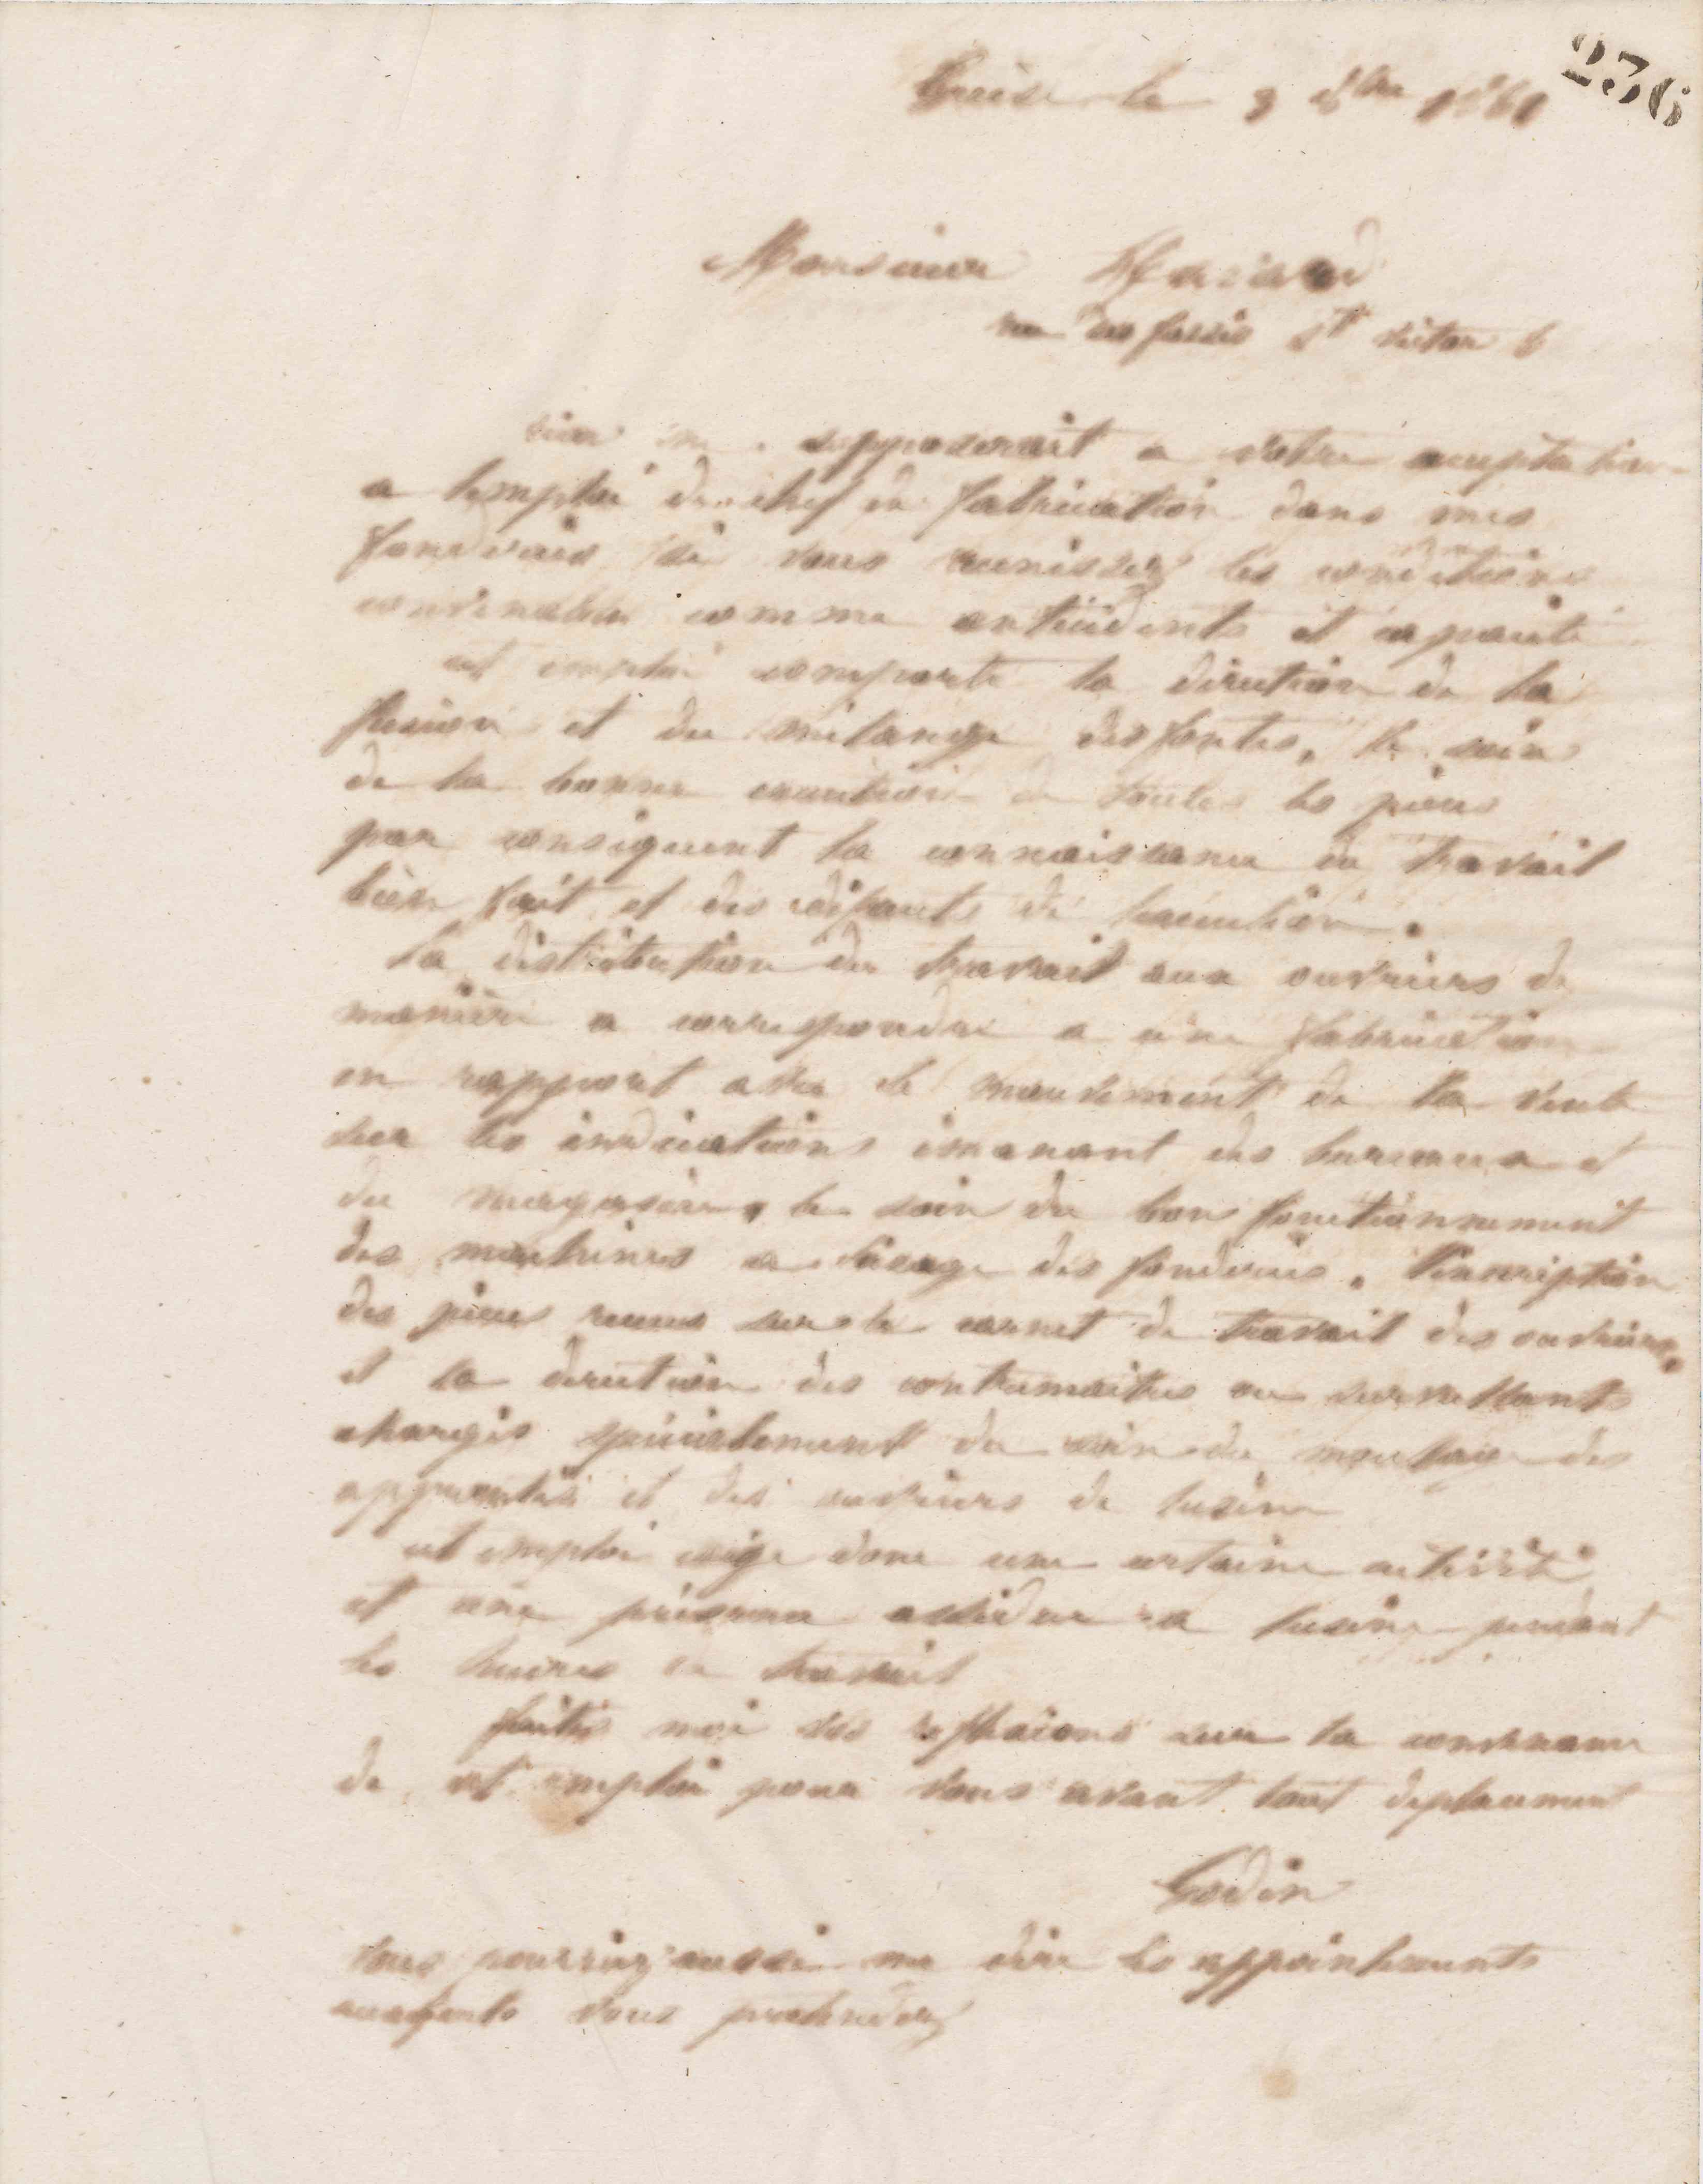 236
Guise le 9 Xbre 1861
Monsieur
rue des fossés St victor 6
rien ne sopposerait a votre acceptation
a lemploi de chef de fabrication dans mes
fonderies si vous reunissez les conditions
convenables comme antécédents et capacité
cet emploi comporte la direction de la
fusion et du mélange des fontes, le soin
de la bonne execution de toutes les pièces
par consiquent la connaissance du travail
bien fait et des défauts de lexecution.
la distribution du travail aux ouvriers de
manière a correspondre a une fabrication
en rapport avec le mouvement de la vente
sur les indications émanant des bureaux et
du magasin, le soin du bon fonctionnement
des machines a lusage des fonderies, linscription
des pièces recues sur le carnet de travail des ouvriers,
et la direction des contremaitres ou surveillants
chargés spécialement du soin du moulage des
apprentis et des ouvriers de lusine
cet emploi exige donc une certaine activité
et une présence assidue a lusine pendant
les heures de travail
faites moi vos reflexions sur la convenance
de cet emploi pour vous avant tout deplacement
Godin
vous pourriez aussi me dire les appointements
auxquels vous pretendez